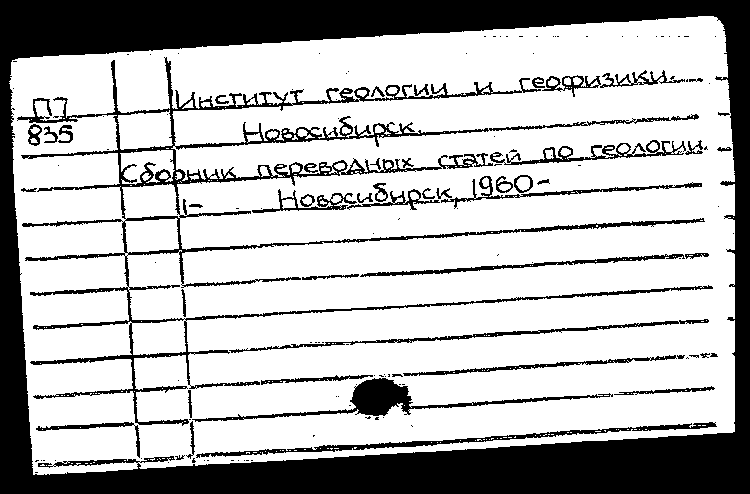 ПП Институт геологии и геофизики.
835 Новосибирск.
Сборник переводных статей по геологии.
1- Новосибирск, 1960-